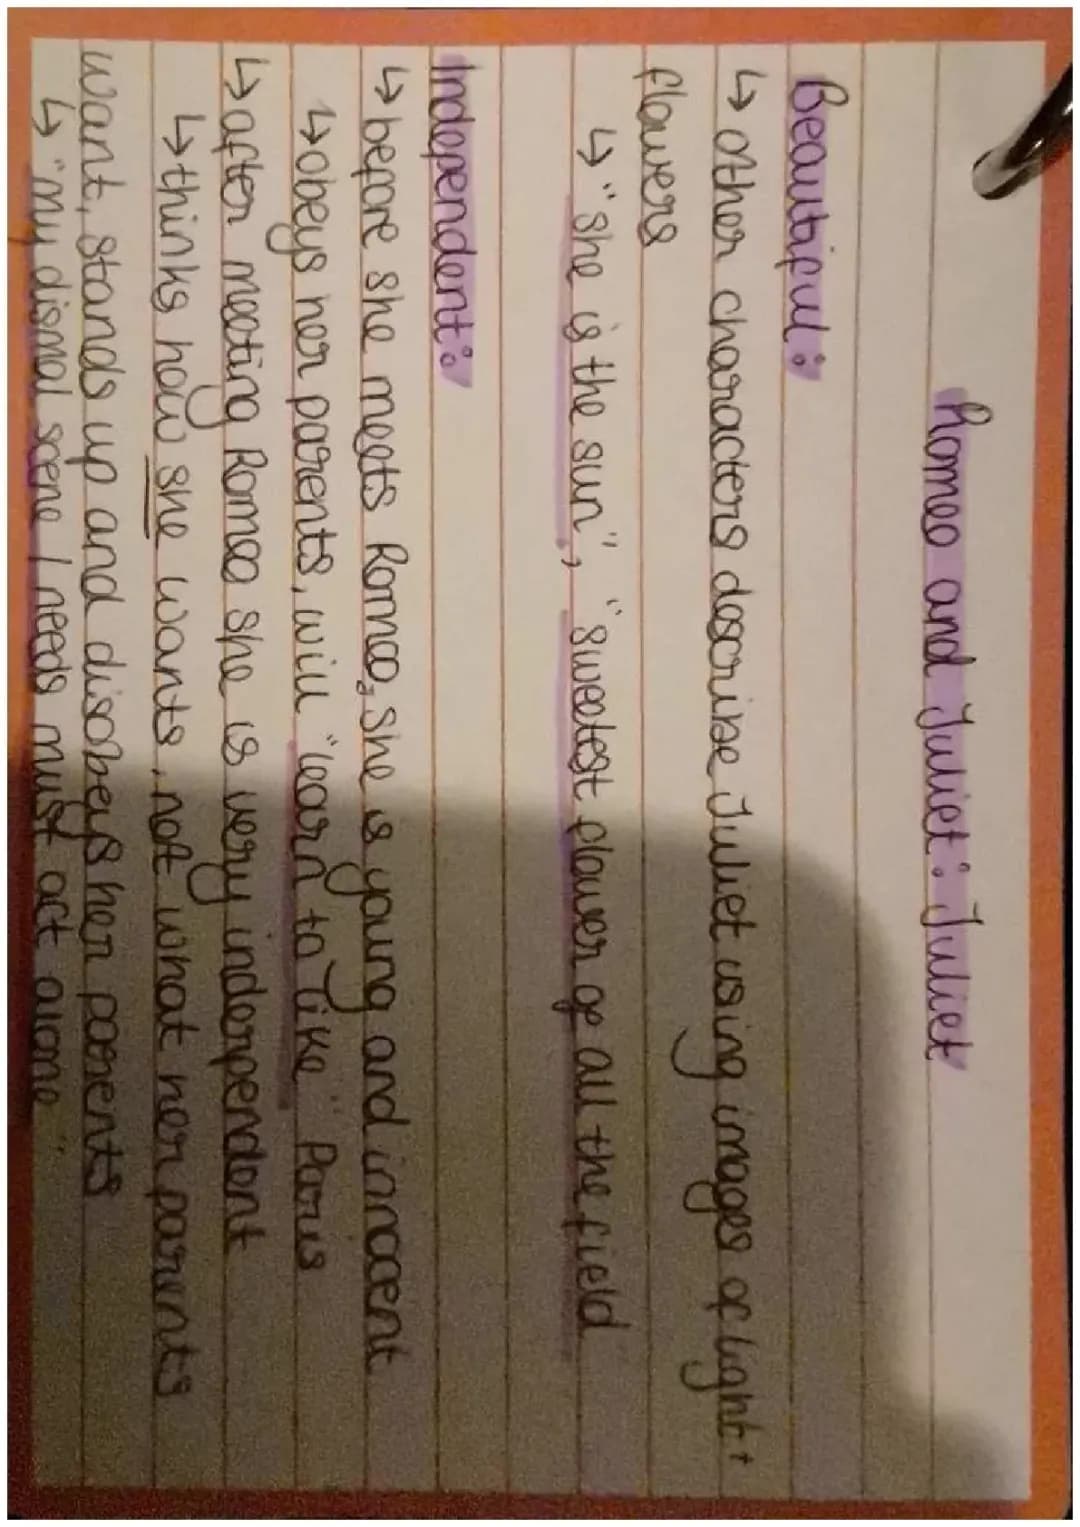 Romeo and Juliet: Juliet
Beautiful:
↳ other characters describe Juliet using images of light +
flowers
↳ "she is the sun", "sweetest flower of all the field
Independent:
↳ before she meets Romeo, she is young and innocent
↳ obeys her parents, will "learn to like" Paris
↳ after meeting Romeo she is very independent
↳ thinks how she wants, not what her parents
want, stands up and disobeys her parents
↳ "my dismal scene I needs must act alone"